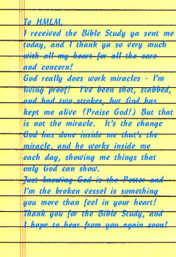 To HMLM,
I received the Bible Study ya sent me
today, and I thank ya so very much
with all my heart for all the care
and concern!
God really does work miracles - I'm
living proof! I've been shot, stabbed,
and had two strokes, but God has
kept me alive (Praise God!) But that
is not the miracle. It's the change
God has done inside me that's the
miracle, and he works inside me
each day, showing me things that
only God can show.
Just knowing God is the Potter and
I'm the broken vessel is something
you more than feel in your heart!
Thank you for the Bible Study, and
I hope to hear from you again soon!